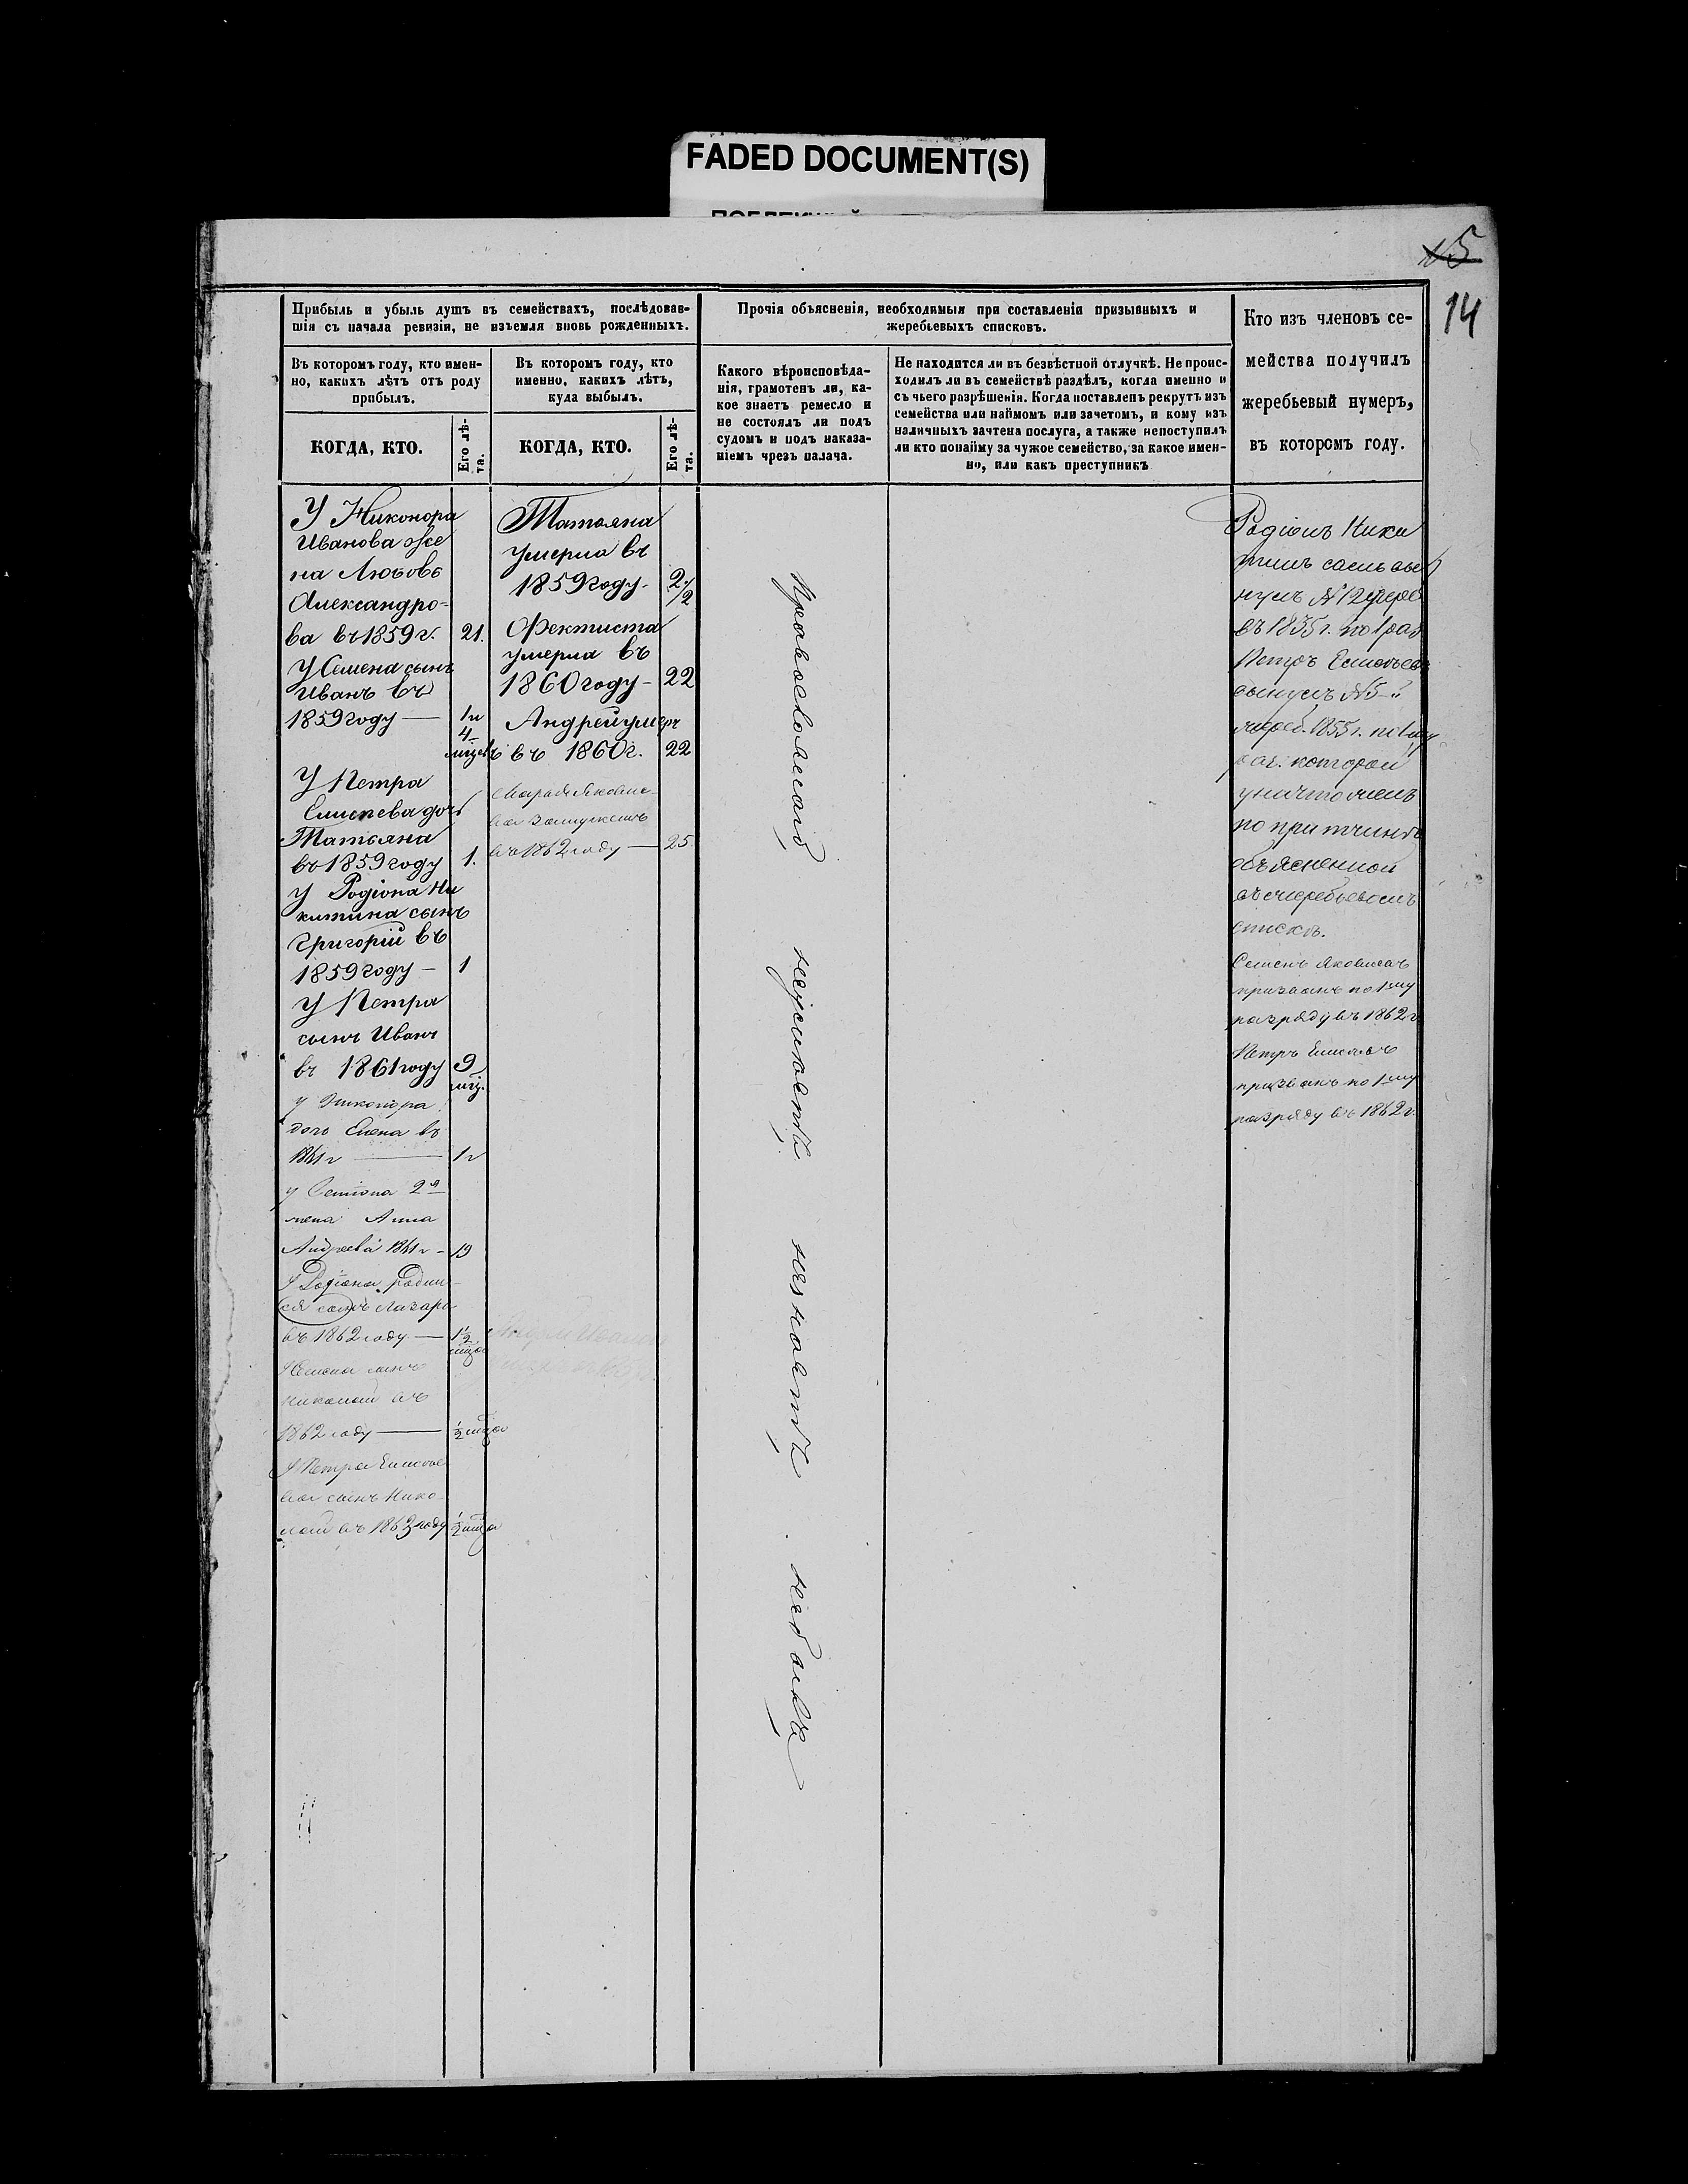 FADED DOCUMENT(S)
№5
14
Прибыль и убыль душъ въ семействахъ, послѣдовав-
шія съ начала ревизіи, не изъемля вновь рожденныхъ.
Въ которомъ году, кто имен-
но, какихъ лѣтъ отъ роду
прибылъ.
КОГДА, КТО.
Его лѣ-
та.
Въ которомъ году, кто
именно, какихъ лѣтъ,
куда выбылъ.
КОГДА, КТО.
Его лѣ-
та.
Прочія объясненія, необходимыя при составленіи призывныхъ и
жеребьевыхъ списковъ.
Какого вѣроисповѣда-
нія, грамотенъ ли, ка-
кое знаетъ ремесло и
не состоялъ ли подъ
судомъ и подъ наказа-
ніемъ чрезъ палача.
Не находится ли въ безвѣстной отлучкѣ. Не проис-
ходилъ ли въ семействѣ раздѣлъ, когда именно и
съ чьего разрѣшенія. Когда поставленъ рекрутъ изъ
семейства или наймомъ или зачетомъ, и кому изъ
наличныхъ зачтена послуга, а также непоступилъ
ли кто понайму за чужое семейство, за какое имен-
но, или какъ преступникъ
Кто изъ членовъ се-
мейства получилъ
жеребьевый нумеръ,
въ которомъ году.
У Никонора
Иванова же
на Любовь
Александро-
ва въ 1859 г. 21.
У Семена сынъ
Иванъ въ
1859 году — 1 и
4
мѣсяц
У Петра
Елисѣева дочь
Татьяна
въ 1859 году 1.
У Родіона Ни
китина сынъ
Григорій въ
1859 году — 1
У Петра
сынъ Иванъ
въ 1861 году 9
мѣ.
у Никонора
дочь Елена въ
1861 г — 1 г
у Семіона 2я
жена Анна
Андреева 1861 г - 19
У Родіона родил-
ся сынъ Лазарь
въ 1862 году — 1½
мца
У Семена сынъ
Николай въ
1862 году — ½ мца
У Петра Елисѣе
ва сынъ Нико
лай въ 1863 году ½ мца
Татьяна
умерла въ
1859 году - 2½
Фектиста
умерла въ
1860 году - 22
Андрей умеръ
въ 1860 г. 22
Марья Яковле-
ва замужемъ
въ 1862 году — 25
Православнаго
неграмотн
Родіонъ Ники
тинъ
№ 12 жереб
въ 1855 г. по 1 раз
Петръ Елисѣевъ
№ 5
жереб. 1855 г. по 1му
раз. которой
уничтоженъ
по притчинѣ
объясненной
въ жеребьевомъ
спискѣ.
Семенъ Яковлевъ
призванъ по 1му
разряду въ 1862 г.
Петръ Елисѣевъ
призванъ по 1му
разряду въ 1862 г.